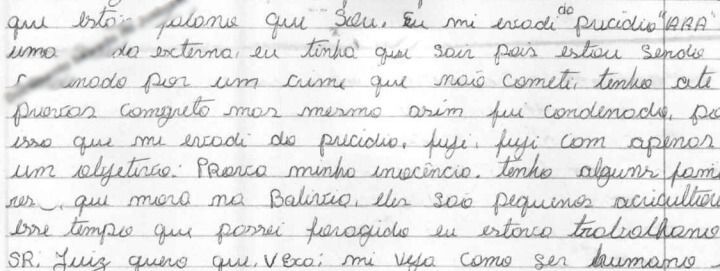 que estou falano que Sou. Eu mi evadi do precidio "ARA"
uma da externa, eu tinha que sair pois estou sendo
por um crime que naõ cometi, tenho ate
provas comgreto mas mesmo asim fui condenado, po
isso que mi evadi do precidio, fuji, fuji com apenas
um objetivo. PRova minha inocência. tenho alguns fami
res, que mora na Bolivia, eles saõ pequenos acricultou
esse tempo que passei foragido eu estava trabalhano
SR. Juiz quero que, VExa; mi veja como ser humano